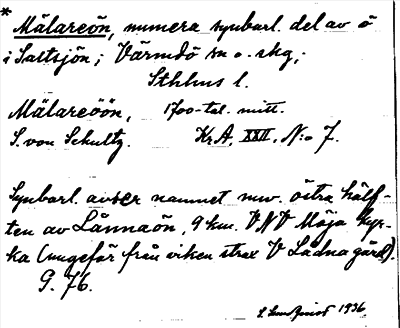 * Mälareön, numera synbarl. del av ö
i Saltsjön; Värmdö sn o. skg;
Sthlms l.
Mälareöön, 1700-tal. mitt.
S. von Schultz. Kr.A. XXII, N:o 7.
Synbarl. avser namnet nuv. östra hälf-
ten av Lännaön, 9 km. VNV Möja kyr-
ka (ungefär från viken strax V Lådna gård).
G. 76.
1936